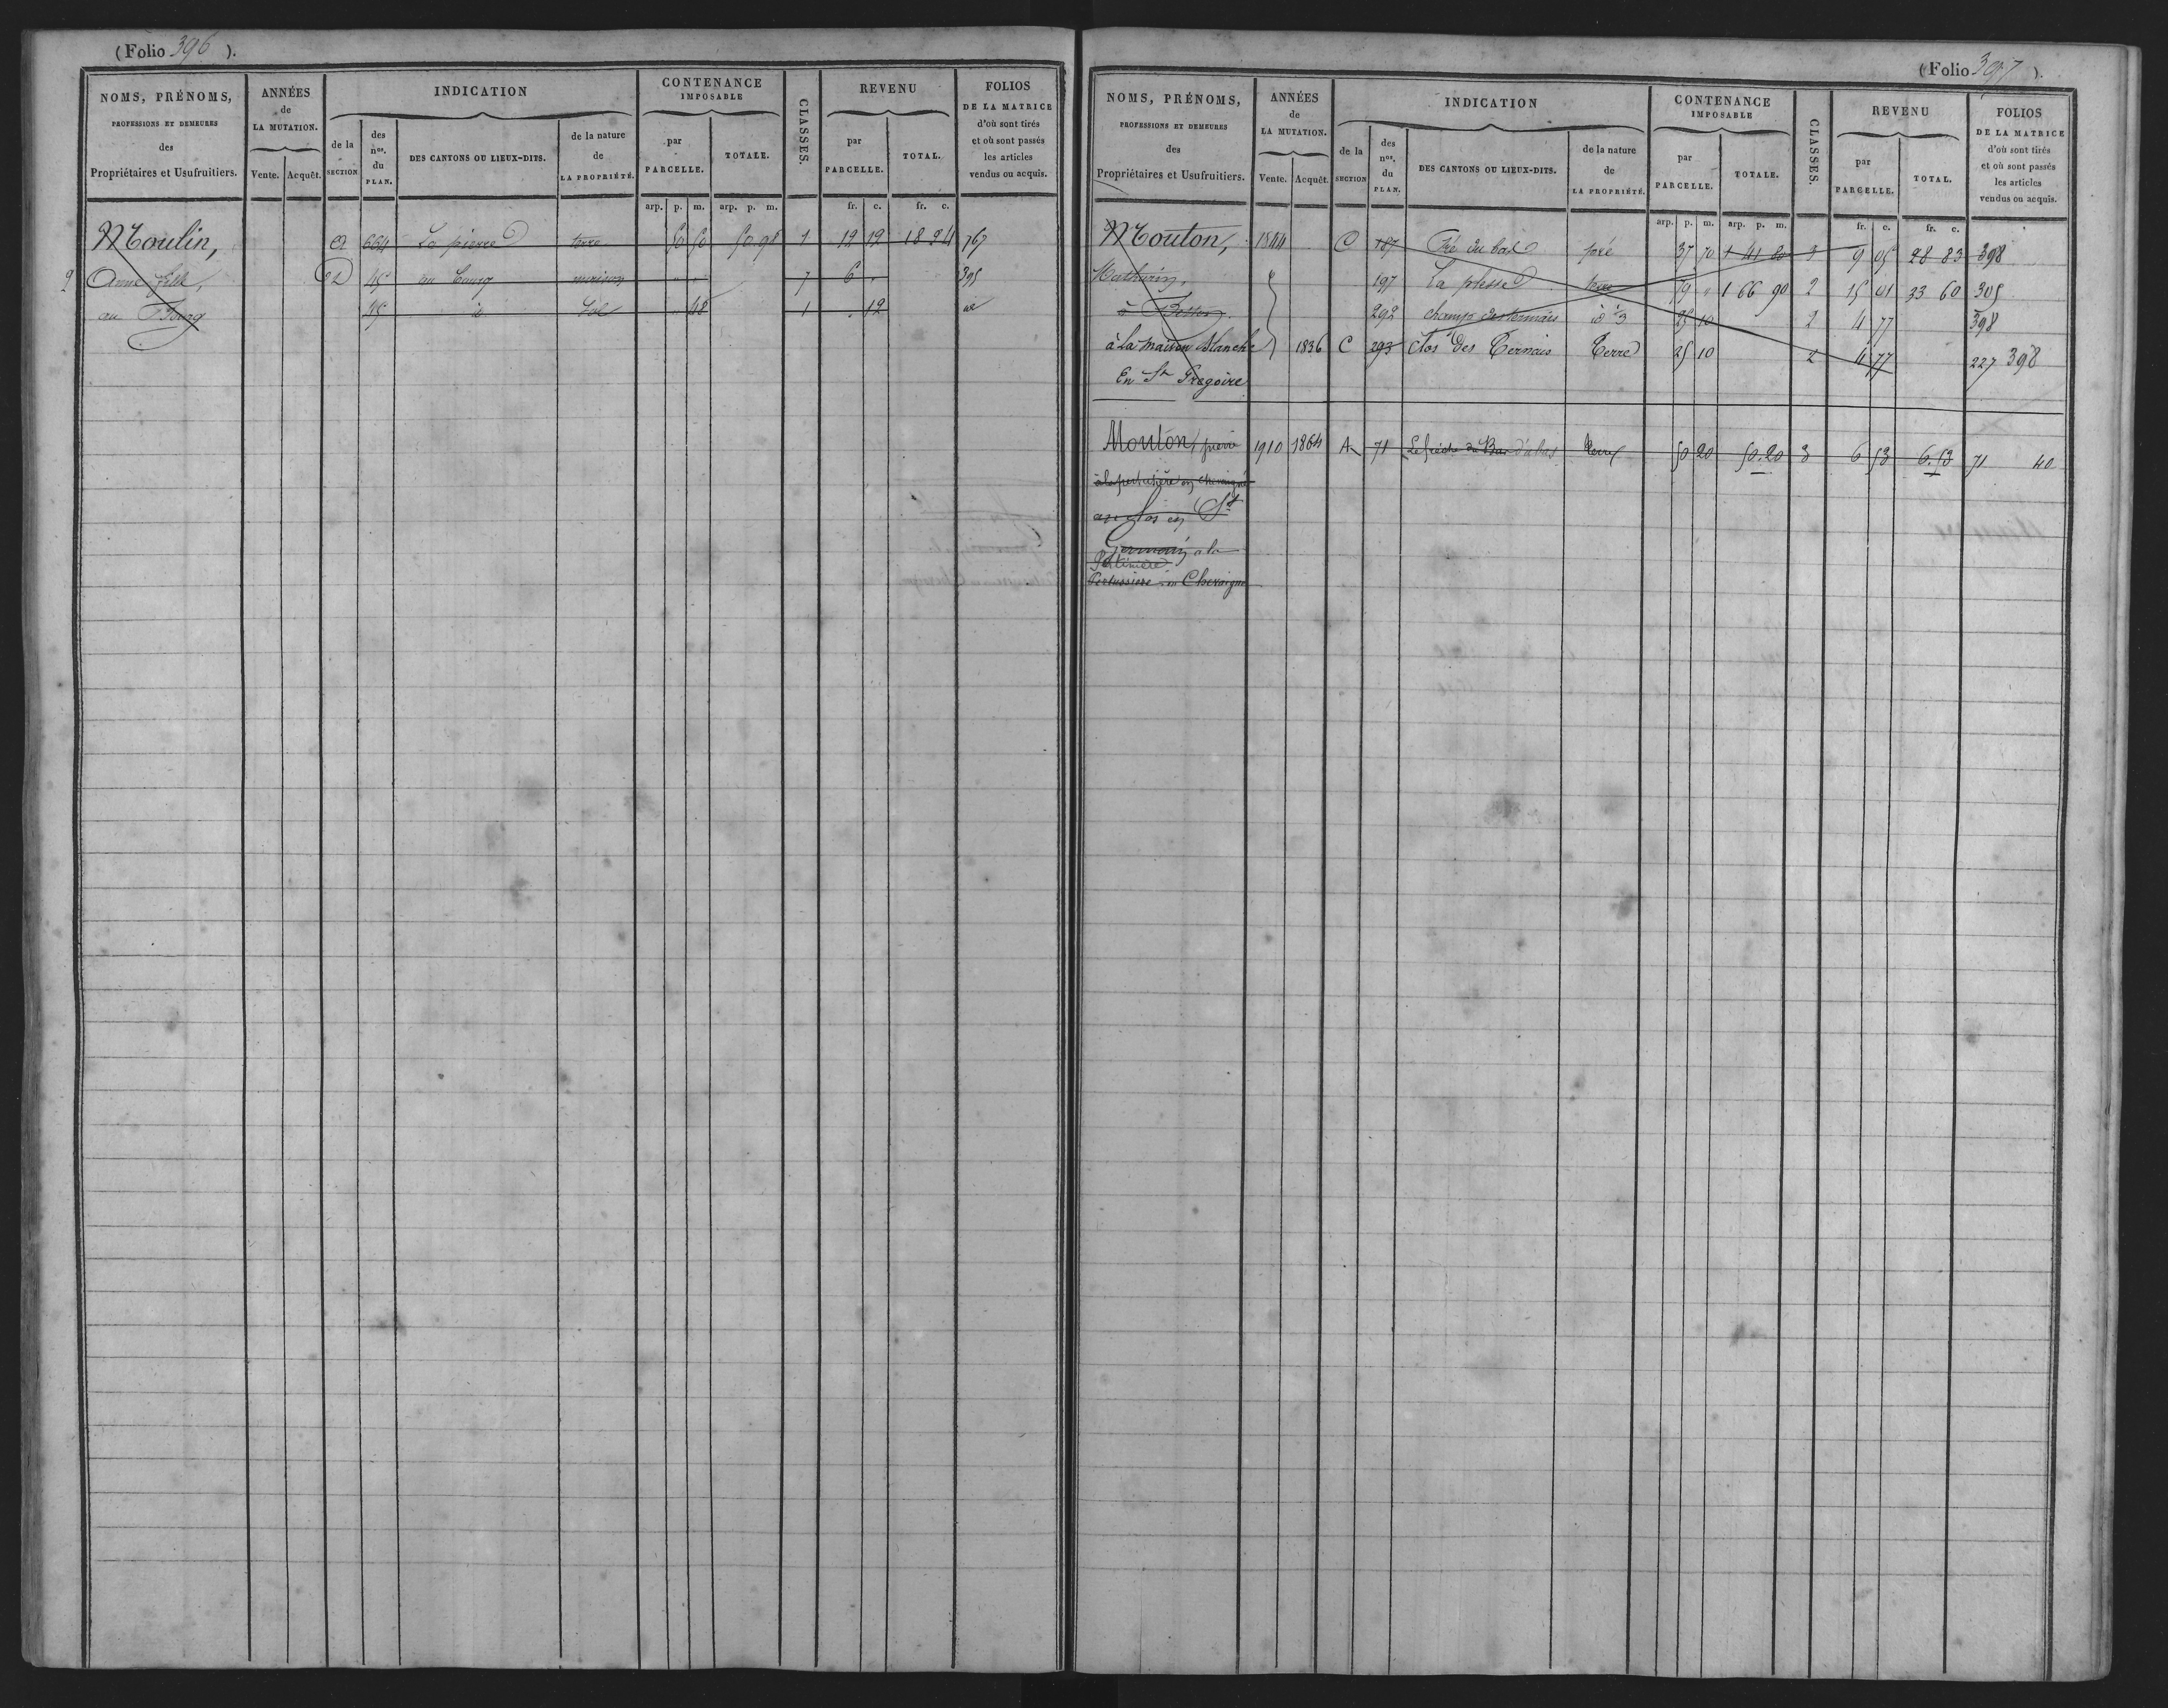 (Folio 396 ).
NOMS, PRÉNOMS,
PROFESSIONS ET DEMEURES
des
Propriétaires et Usufruitiers.
ANNÉES
de
LA MUTATION.
Vente. Acquêt.
INDICATION
de la
SECTION
des
nos.
du
PLAN.
DES CANTONS OU LIEUX-DITS.
de la nature
de
LA PROPRIÉTÉ.
CONTENANCE
IMPOSABLE
par
PARCELLE.
TOTALE.
CLASSES.
REVENU
par
PARCELLE.
TOTAL.
FOLIOS
DE LA MATRICE
d'où sont tirés
et où sont passés
les articles
vendus ou acquis.
arp. p. m. arp. p. m. fr. c. fr. c.
Moulin, 664 La pierre terre 50 50 50 98 1 12 12 18 24 767
Anne fille, 45 au bourg maison " " 7 6 " 395
au Bourg 45 id Sol " 48 1 " 12 id
(Folio 397 ).
NOMS, PRÉNOMS,
PROFESSIONS ET DEMEURES
des
Propriétaires et Usufruitiers.
ANNÉES
de
LA MUTATION.
Vente. Acquêt.
INDICATION
de la
SECTION
des
nos.
du
PLAN.
DES CANTONS OU LIEUX-DITS.
de la nature
de
LA PROPRIÉTÉ.
CONTENANCE
IMPOSABLE
par
PARCELLE.
TOTALE.
CLASSES.
REVENU
par
PARCELLE.
TOTAL.
FOLIOS
DE LA MATRICE
d'où sont tirés
et où sont passés
les articles
vendus ou acquis.
arp. p. m. arp. p. m. fr. c. fr. c.
Mouton, 1844 C 187 Pré du bas pré 37 70 1 41 80 3 9 05 28 83 398
Mathurin, 197 La plesse terre 79 " 1 66 90 2 15 01 33 60 305
à Betton. 292 champ des ternais id 25 10 2 4 77 398
à La maison Blanche 1836 C 293 Clos des Ternais Terre 25 10 2 4 77 227 398
En St Gregoire
Mouton, pierre 1910 1864 A 71 d'abas terre 50 20 50.20 3 6 53 6.53 71 40
en chevaigné
en St
Germain à la
en Chevaigné